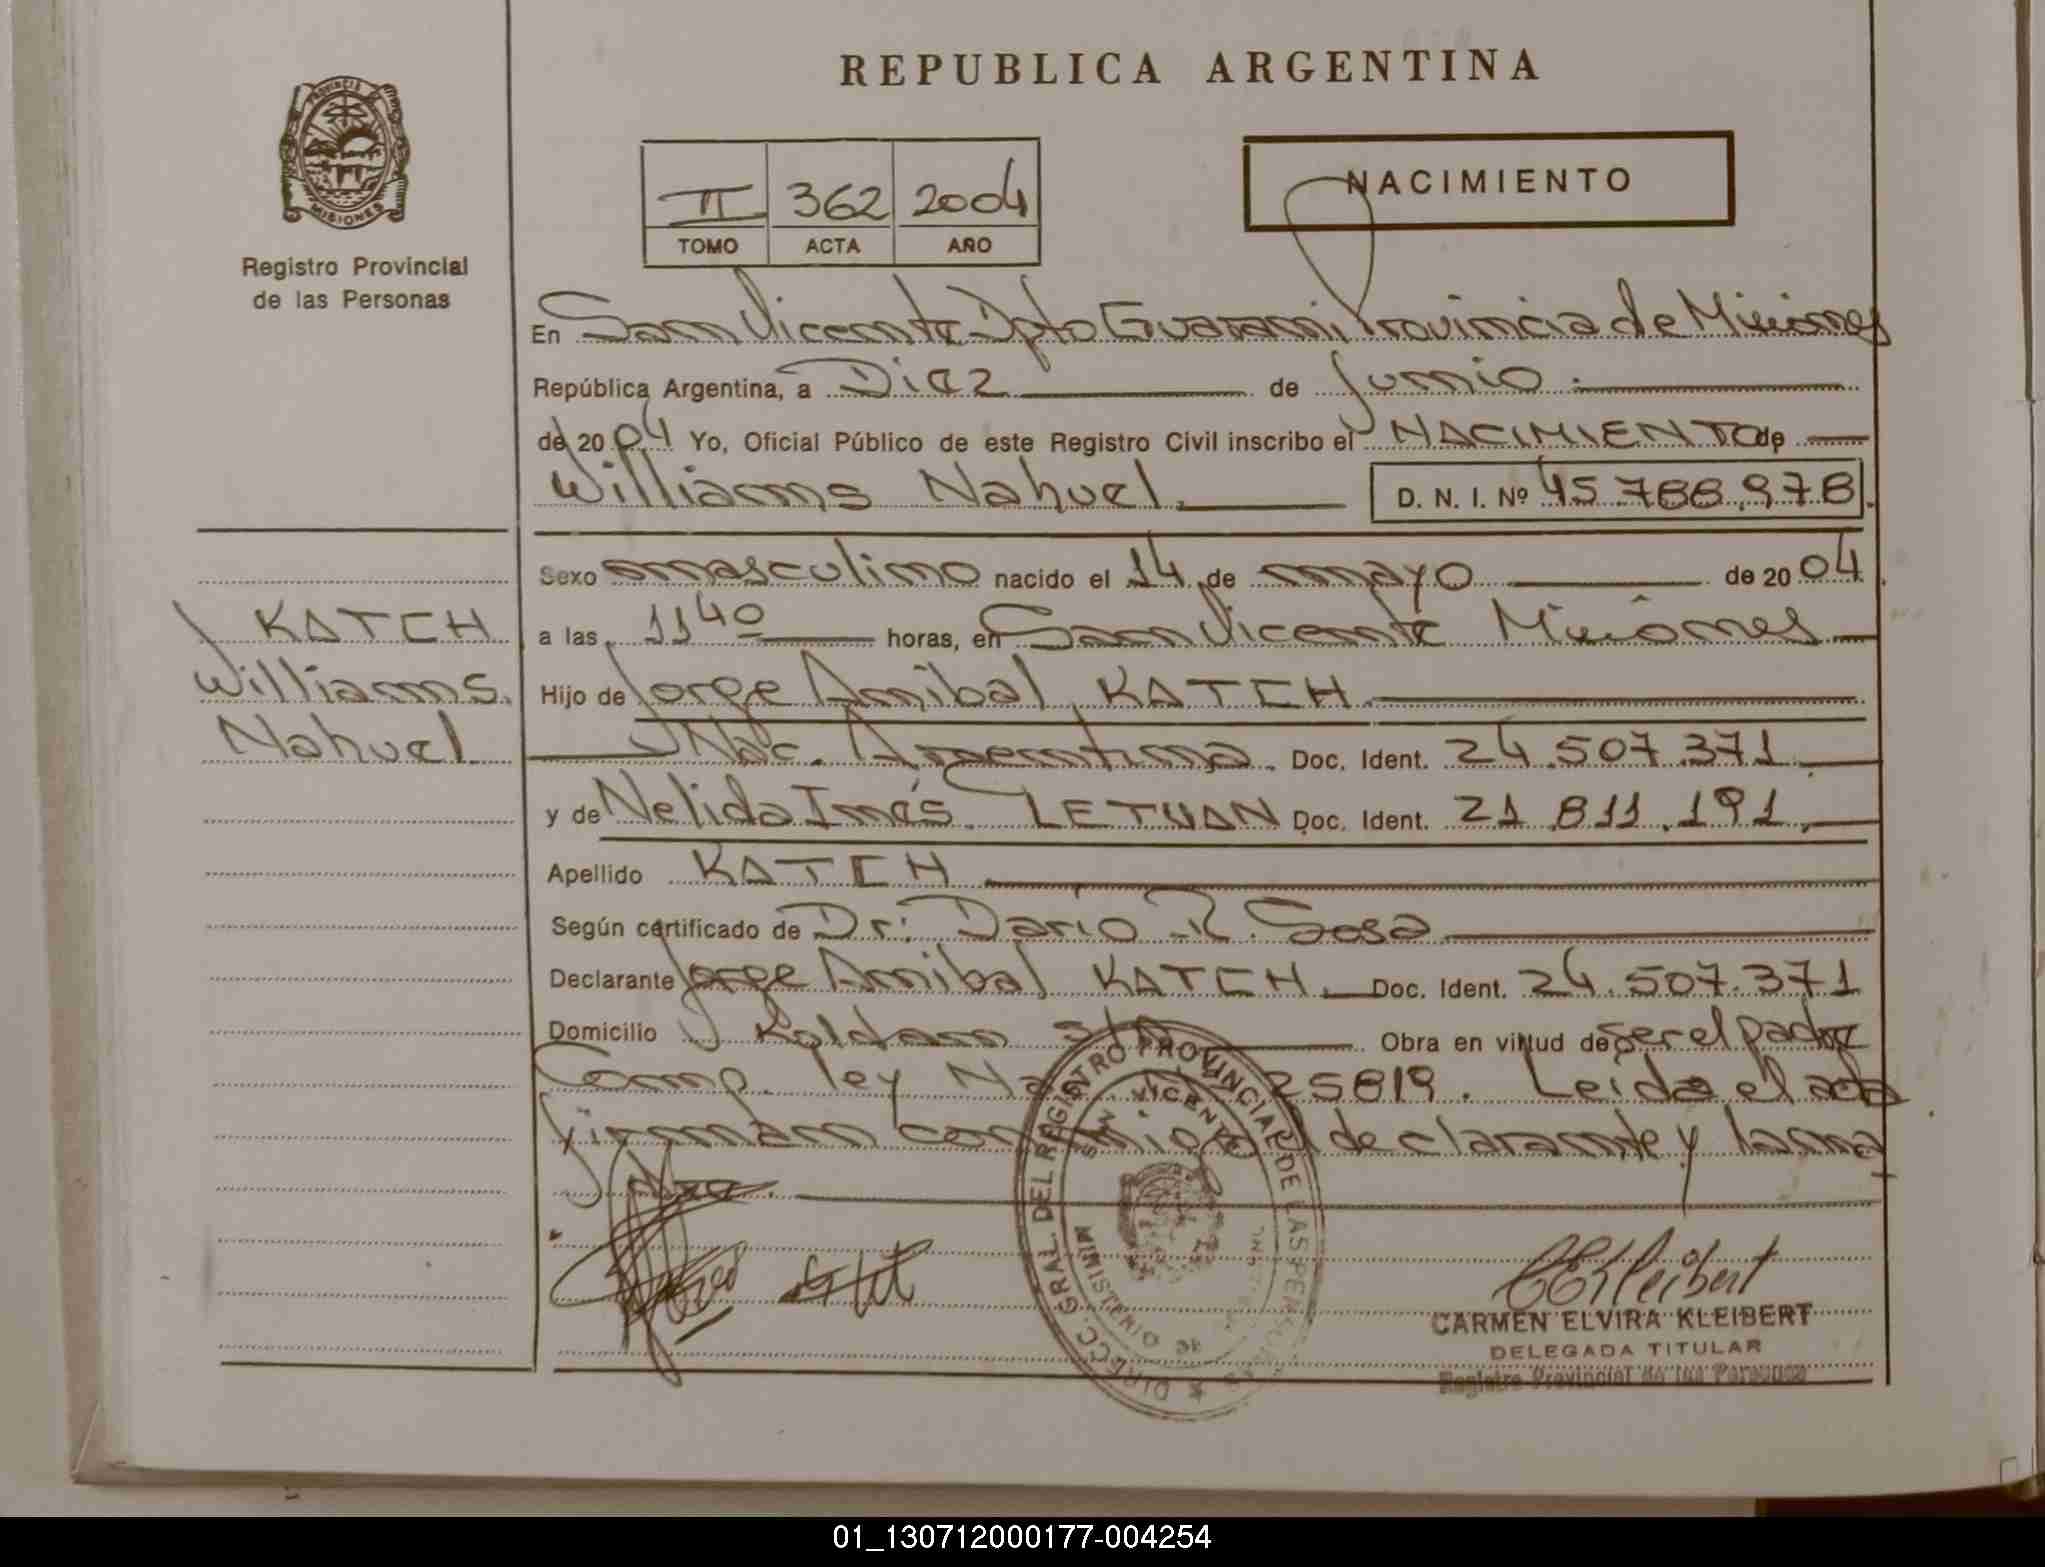 REPUBLICA ARGENTINA
PROVINCIA DE
MISIONES
Registro Provincial
de las Personas
II 362 2004
TOMO ACTA AÑO
NACIMIENTO
En San Vicente Dpto Guaraní Provincia de Misiones
República Argentina, a Diez de Junio
de 2004 Yo, Oficial Público de este Registro Civil inscribo el NACIMIENTO de
Williams Nahuel D. N. I. Nº 45.788.978
Sexo masculino nacido el 14 de mayo de 2004
a las 1140 horas, en San Vicente Misiones
KATCH
Williams
Nahuel
Hijo de Jorge Anibal KATCH
Nac. Argentina. Doc. Ident. 24.507.371
y de Nelida Inés LETUAN Doc. Ident. 21.811.191
Apellido KATCH
Según certificado de Dr: Dario R. Sosa
Declarante Jorge Anibal KATCH Doc. Ident. 24.507.371
Domicilio Roldan s/n Obra en virtud de ser el padre
Comp. ley Na 25819. Leída el acta
firman conmigo el declarante y la ma
dre.
DIRECC. GRAL. DEL REGISTRO PROVINCIAL DE LAS PERSONAS
SAN VICENTE
CEKleibert
CARMEN ELVIRA KLEIBERT
DELEGADA TITULAR
Registro Provincial de las Personas
01_130712000177-004254